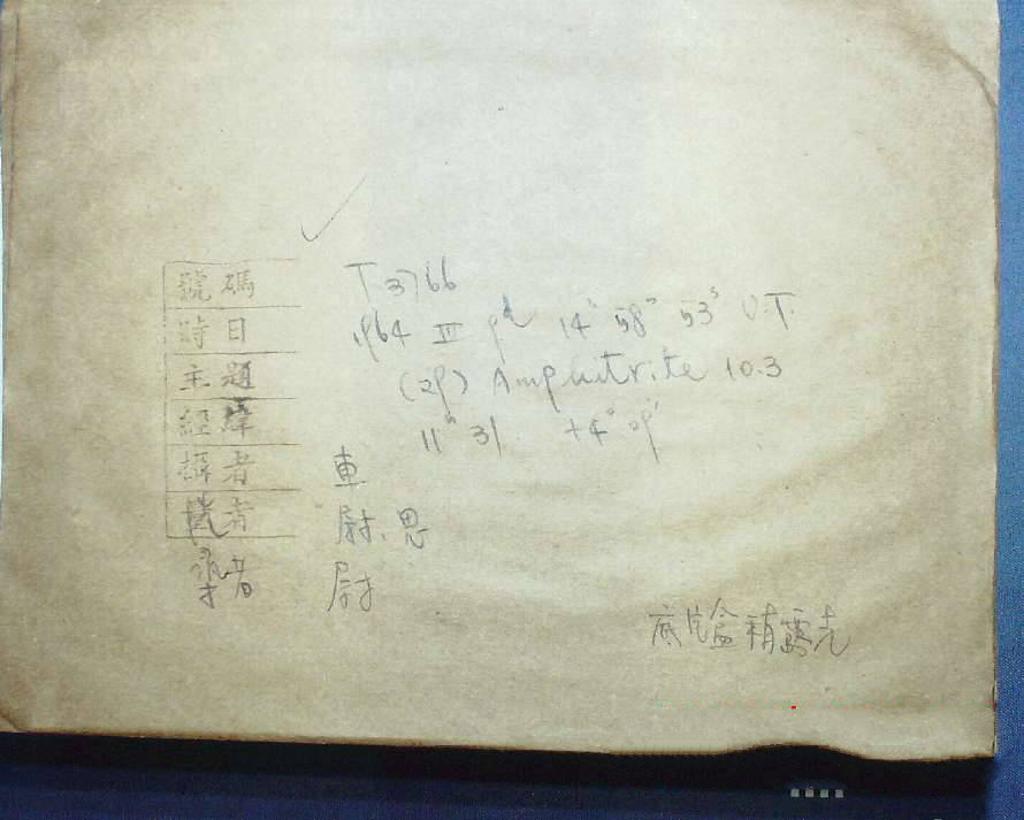 號碼 T 3766
時日 1964 III 9d 14h 58m 53s U.T.
主題 (29) Amphitrite 10.3
經緯 11h 31 +4° 29'
攝者 車
尉、思
尉
底片盒稍露光